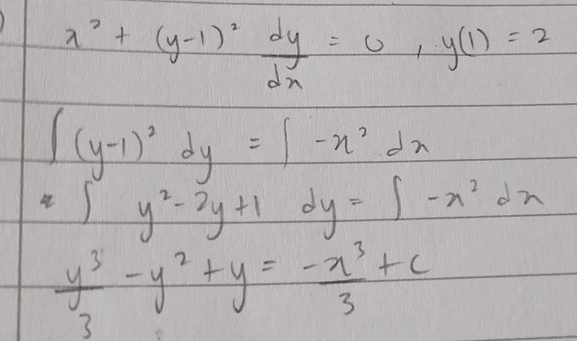 x² + (y-1)² dy/dx = 0 , y(1) = 2
∫ (y-1)² dy = ∫ -x² dx
∫ y² - 2y + 1 dy = ∫ -x² dx
y³/3 - y² + y = -x³/3 + c